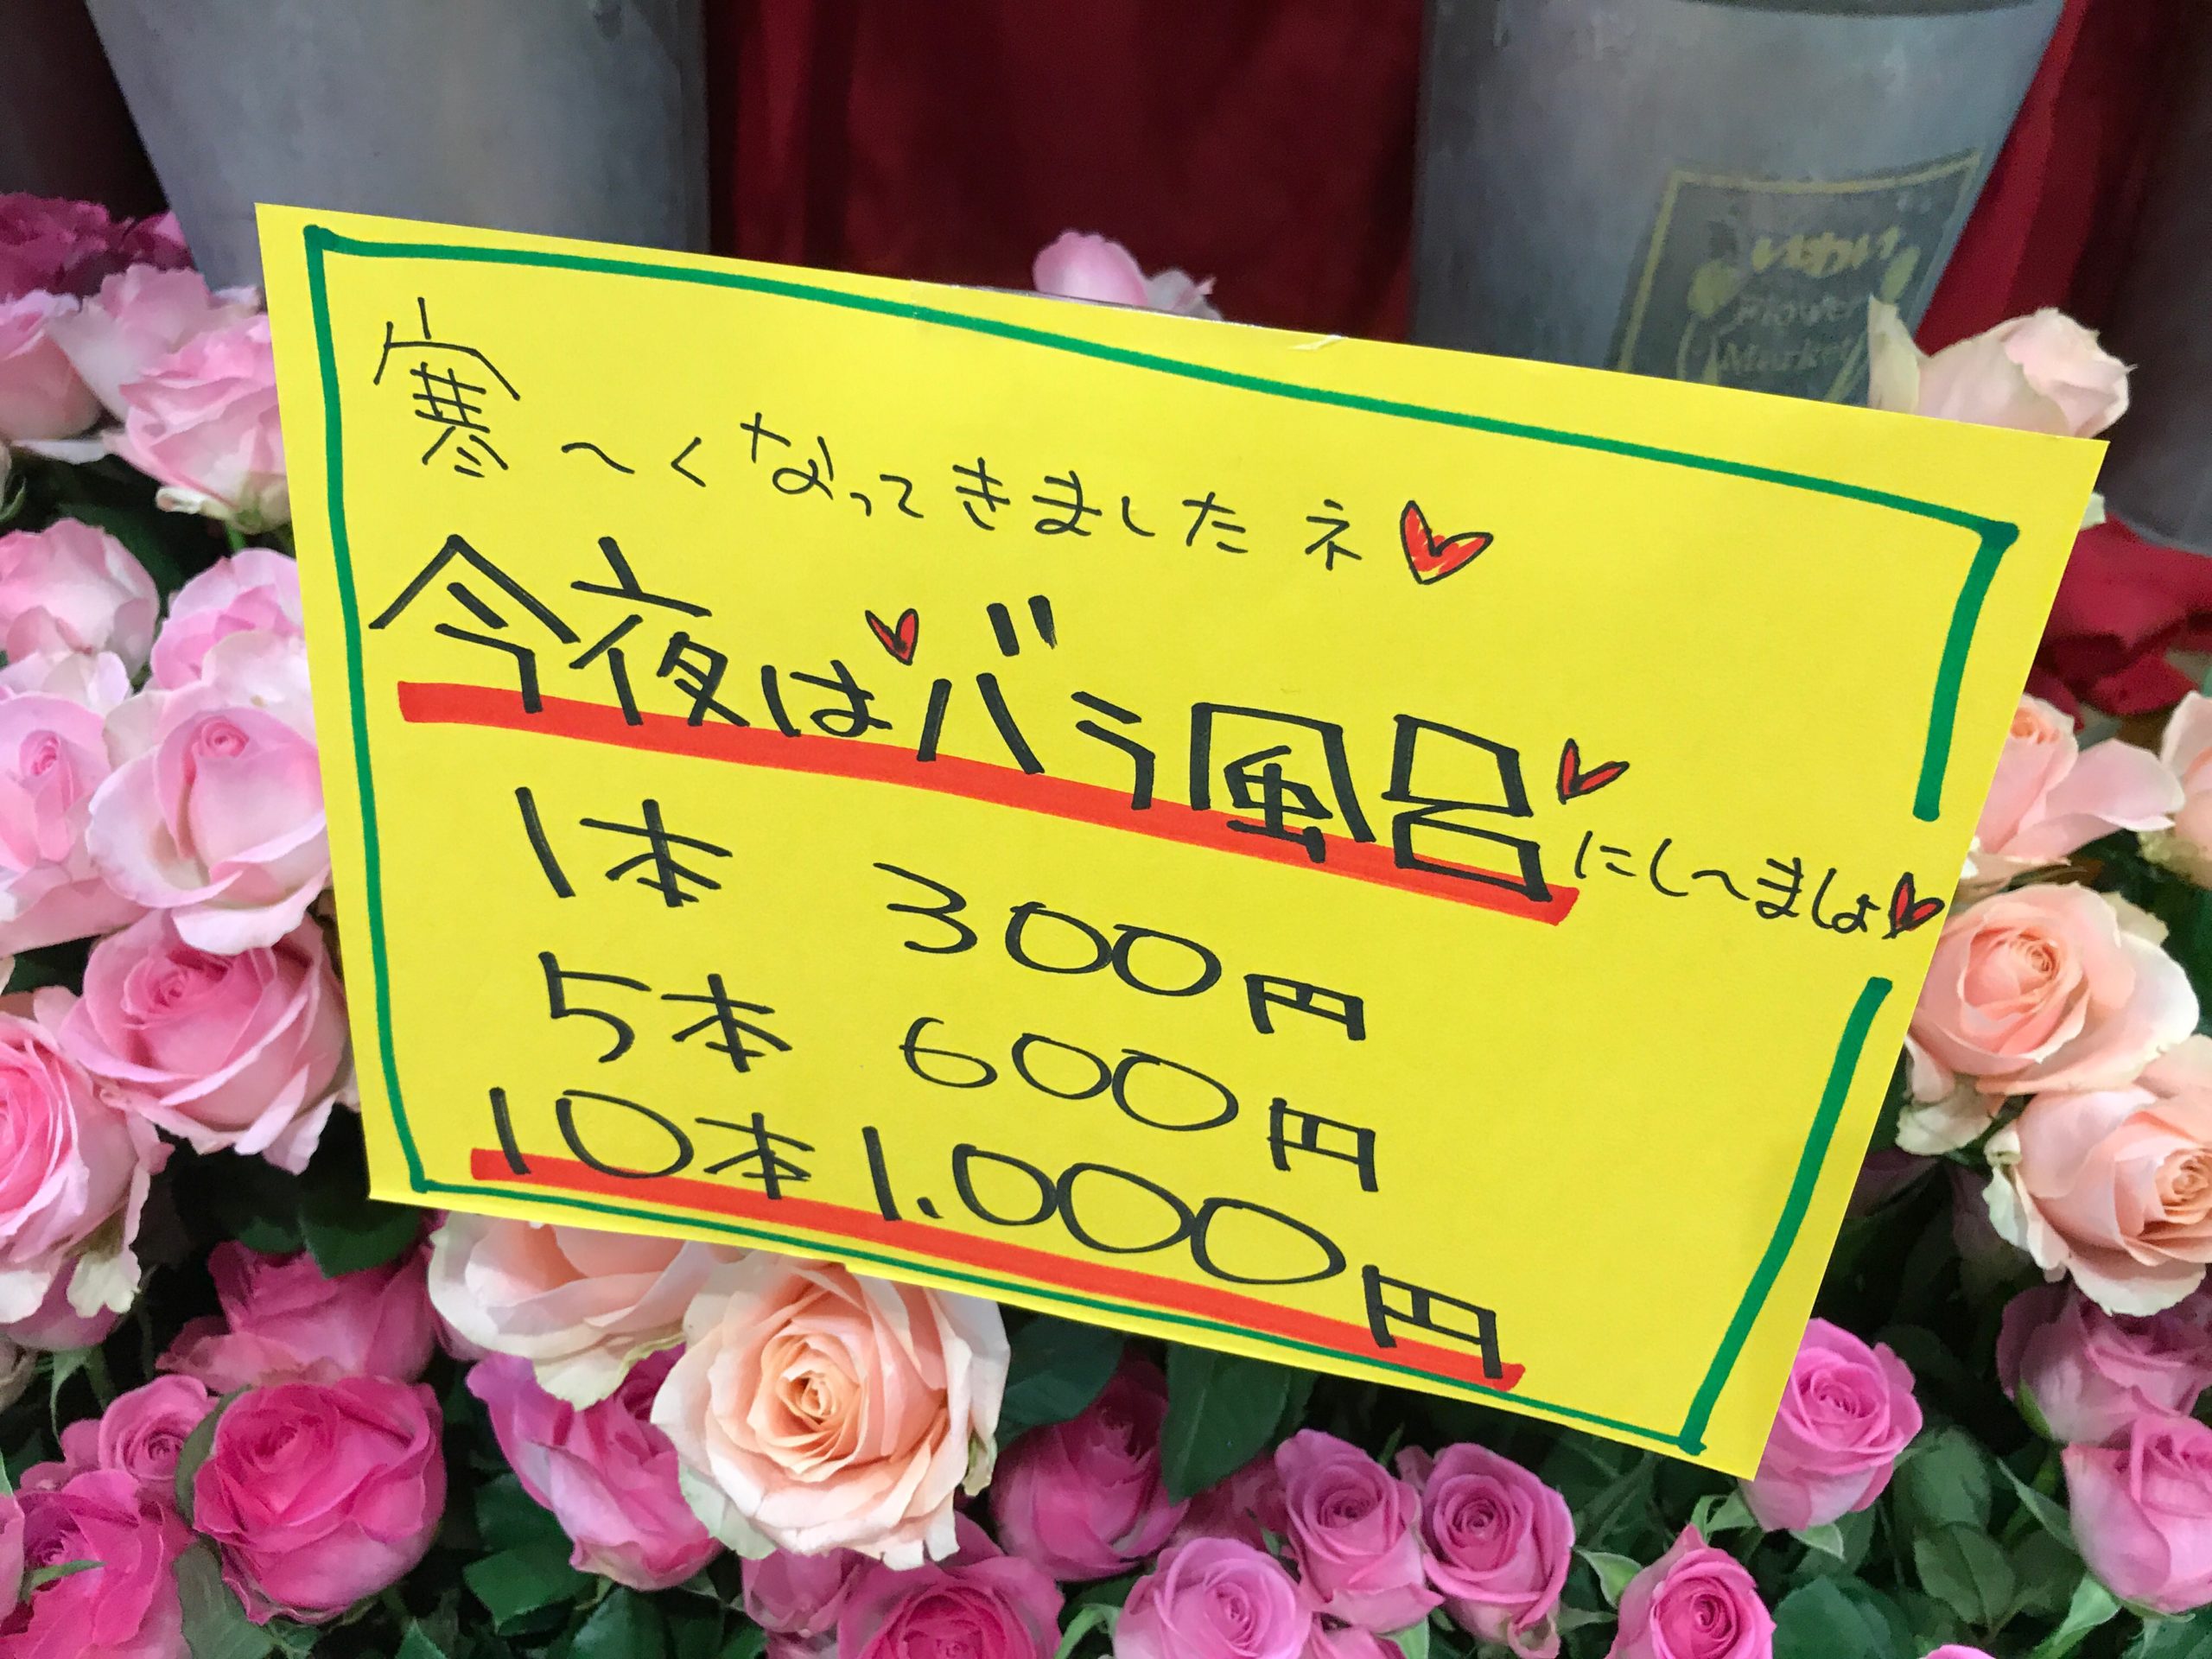 いわい
Flower
Market
寒〜くなってきましたネ♥
今夜は♥バラ風呂♥にし〜ましょ♥
1本 300円
5本 600円
10本 1.000円